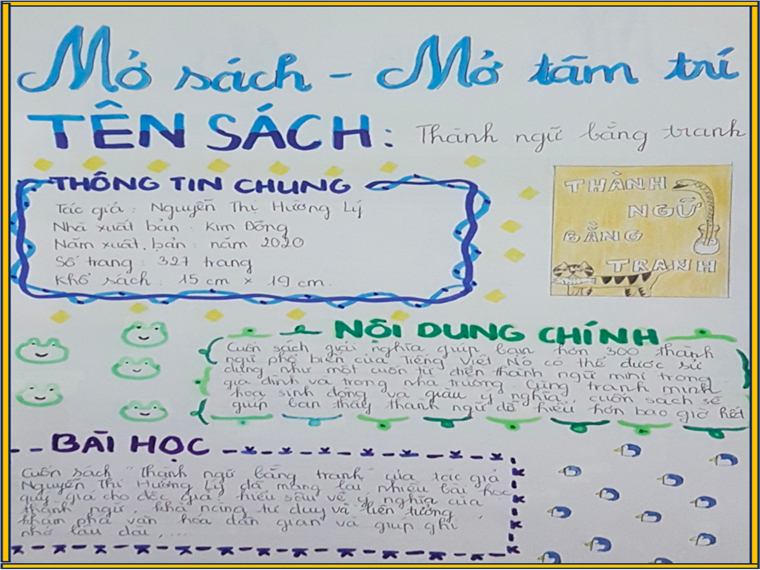 Mở sách - Mở tâm trí
TÊN SÁCH: Thành ngữ bằng tranh
THÔNG TIN CHUNG
Tác giả: Nguyễn Thị Hường Lý
Nhà xuất bản: Kim Đồng
Năm xuất bản: năm 2020
Số trang: 327 trang
Khổ sách: 15 cm × 19 cm.
THÀNH
NGỮ
BẰNG
TRANH
NỘI DUNG CHÍNH
Cuốn sách giải nghĩa giúp bạn hơn 300 thành
ngữ phổ biến của Tiếng Việt Nó có thể được sử
dụng như một cuốn từ điển thành ngữ mini trong
gia đình và trong nhà trường Cùng tranh minh
họa sinh động và giàu ý nghĩa, cuốn sách sẽ
giúp bạn thấy thành ngữ dễ hiểu hơn bao giờ hết
BÀI HỌC
Cuốn sách "thành ngữ bằng tranh" của tác giả
Nguyễn Thị Hường Lý đã mang lại nhiều bài học
quý giá cho độc giả: hiểu sâu về ý nghĩa của
thành ngữ, khả năng tư duy và liên tưởng,
khám phá văn hóa dân gian và giúp ghi
nhớ lâu dài,...